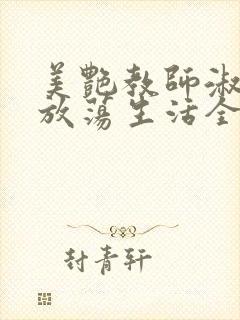 美艷教師淑
放蕩生活全
封青軒